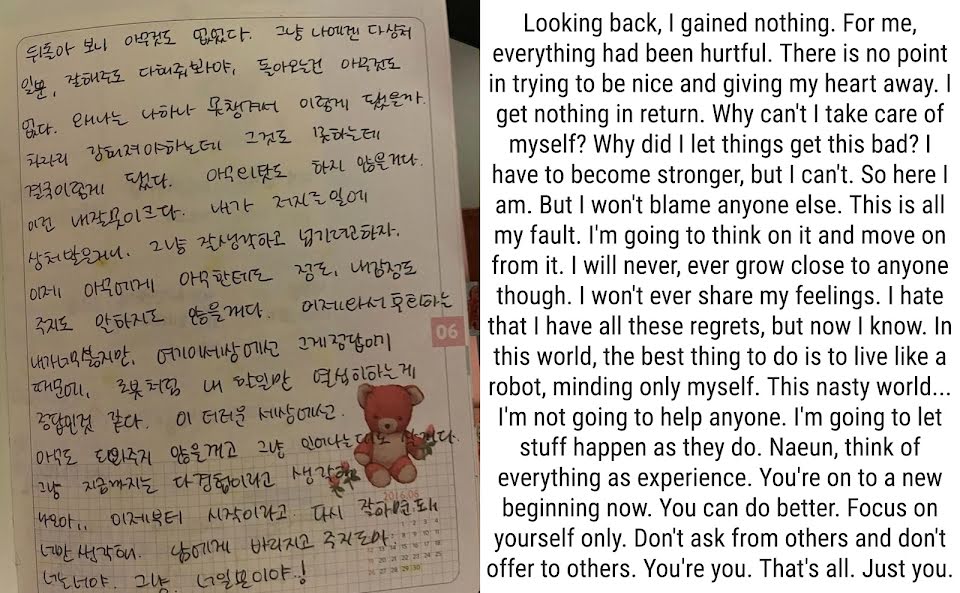 뒤돌아 보니 아무것도 없었다. 그냥 나에겐 다상처
일뿐, 잘해주고 다해줘봐야, 돌아오는건 아무것도
없다. 왜나는 나하나 못챙겨서 이렇게 됐을까.
차라리 강해져야하는데 그것도 못하는데
결국이렇게 됐다. 아무의탓도 하지 않을거다.
이건 내잘못이크다. 내가 저지른일에
상처받은거니, 그냥 잘생각하고 넘기려고하자.
이제 아무에게 아무한테도 정도, 내감정도
주지도 안하지도 않을거다. 이제와서 후회하는
내가너무싫지만, 여기이세상에선 그게정답이기
때문에, 로봇처럼 내 할일만 열심히하는게
정답인것 같다. 이 더러운 세상에선.
아무도 도와주지 않을거고 그냥 일어나는대로 살거다.
그냥 지금까지는 다경험이라고
나은아,, 이제부터 시작이라고 다시 잘하면돼
너만생각해. 남에게 바라지고 주지도마.
너는너야. 그냥, 너일뿐이야.!
06
2016.06
Looking back, I gained nothing. For me,
everything had been hurtful. There is no point
in trying to be nice and giving my heart away. I
get nothing in return. Why can't I take care of
myself? Why did I let things get this bad? I
have to become stronger, but I can't. So here I
am. But I won't blame anyone else. This is all
my fault. I'm going to think on it and move on
from it. I will never, ever grow close to anyone
though. I won't ever share my feelings. I hate
that I have all these regrets, but now I know. In
this world, the best thing to do is to live like a
robot, minding only myself. This nasty world...
I'm not going to help anyone. I'm going to let
stuff happen as they do. Naeun, think of
everything as experience. You're on to a new
beginning now. You can do better. Focus on
yourself only. Don't ask from others and don't
offer to others. You're you. That's all. Just you.